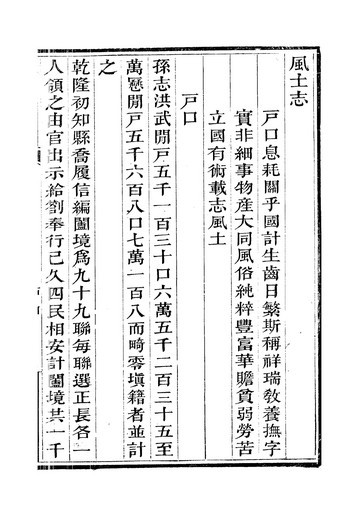 風土志
戸口息耗關乎國計生齒日繁斯稱祥瑞敎養撫字
實非細事物産大同風俗純粹豐富華贍貧弱勞苦
立國有術載志風土
戸口
孫志洪武開戸五千一百三十口六萬五千二百三十五至
萬厯開戸五千六百八口七萬一百八而畸零塡籍者並計
之
乾隆初知縣喬履信編闔境爲九十九聯每聯選正長各一
人領之由官出示給劄奉行已久四民相安計闔境共一千